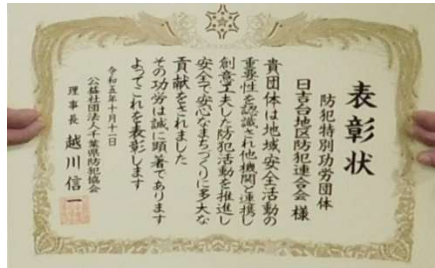 表彰状
防犯特別功労団体
日吉台地区防犯連合会 様
貴団体は地域安全活動の
重要性を認識され他機関と連携し
創意工夫した防犯活動を推進し
安全で安心なまちづくりに多大な
貢献をされました
その功労は誠に顕著であります
よってこれを表彰します
令和五年十月十一日
公益社団法人千葉県防犯協会
理事長 越川信一